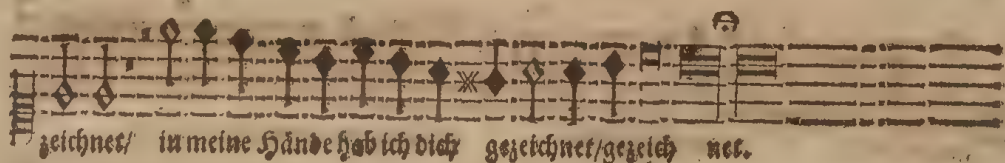 zeichnet/ in meine Hände hab ich dich gezeichnet/gezeich net.